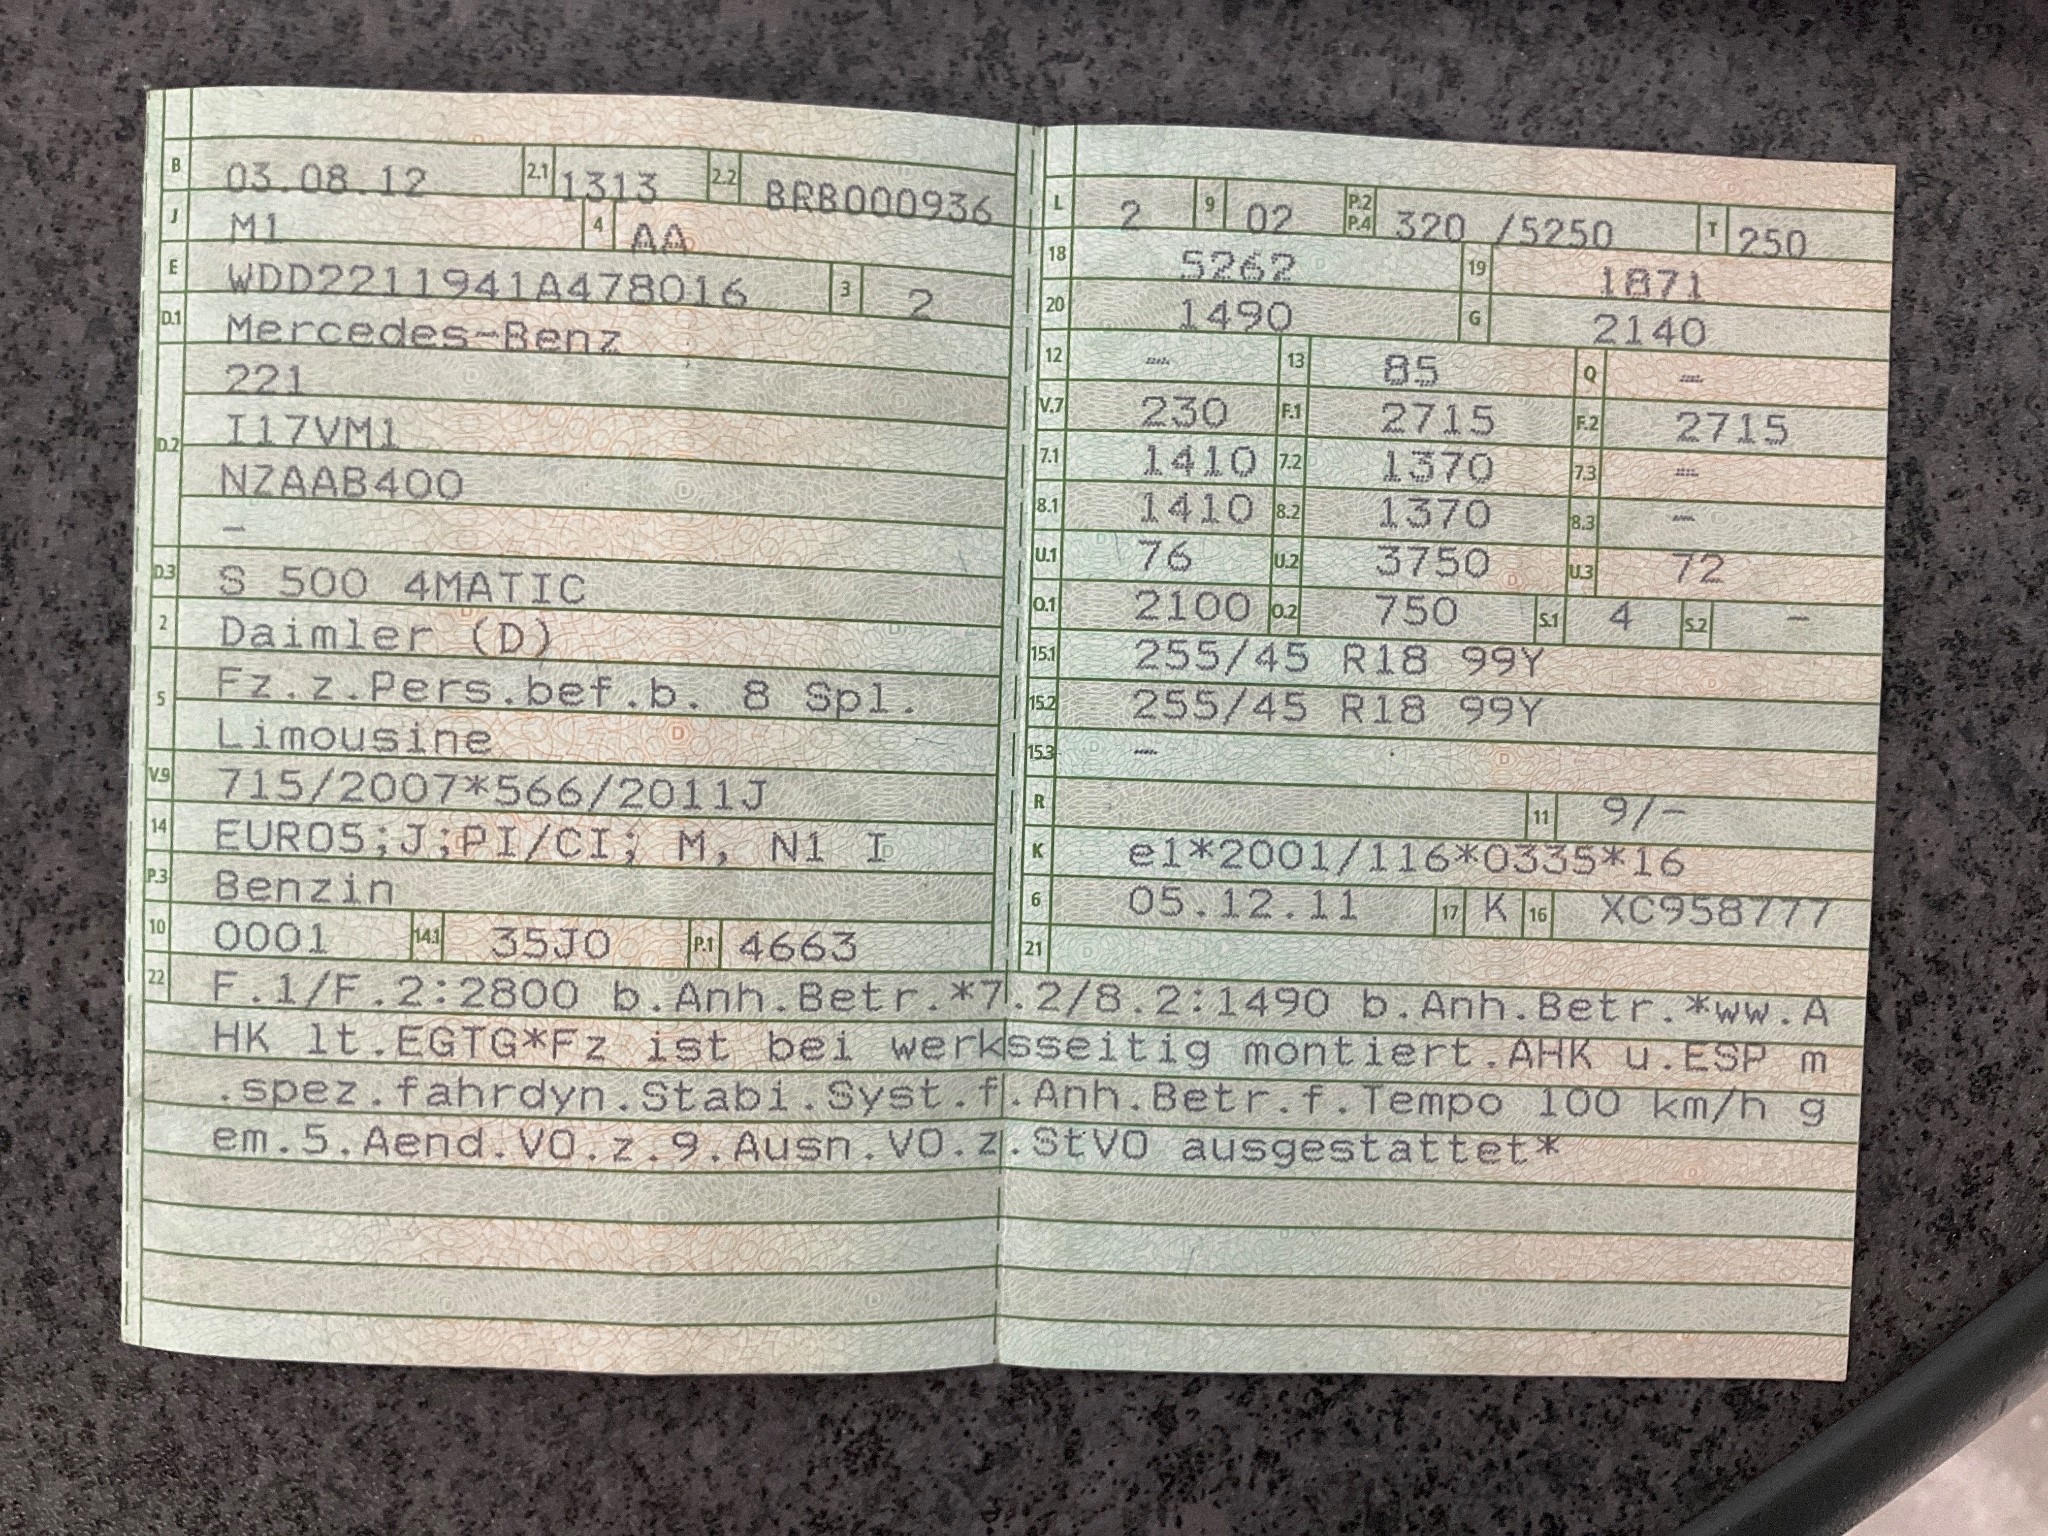 B 03.08.12 2.1 1313 2.2 BRB000936
J M1 4 AA
E WDD2211941A478016 3 2
D.1 Mercedes-Benz
221
D.2 I17VM1
NZAAB400
-
D.3 S 500 4MATIC
2 Daimler (D)
5 Fz.z.Pers.bef.b. 8 Spl.
Limousine
V.9 715/2007*566/2011J
14 EURO5;J;PI/CI; M, N1 I
P.3 Benzin
10 0001 14.1 35J0 P.1 4663
L 2 9 02 P.2 P.4 320 /5250 T 250
18 5262 19 1871
20 1490 G 2140
12 — 13 85 Q —
V.7 230 F.1 2715 F.2 2715
7.1 1410 7.2 1370 7.3 —
8.1 1410 8.2 1370 8.3 —
U.1 76 U.2 3750 U.3 72
O.1 2100 O.2 750 S.1 4 S.2 -
15.1 255/45 R18 99Y
15.2 255/45 R18 99Y
15.3 —
R 11 9/-
K e1*2001/116*0335*16
6 05.12.11 17 K 16 XC958777
21
22 F.1/F.2:2800 b.Anh.Betr.*7.2/8.2:1490 b.Anh.Betr.*ww.A
HK lt.EGTG*Fz ist bei werksseitig montiert.AHK u.ESP m
.spez.fahrdyn.Stabi.Syst.f.Anh.Betr.f.Tempo 100 km/h g
em.5.Aend.VO.z.9.Ausn.VO.z.StVO ausgestattet*